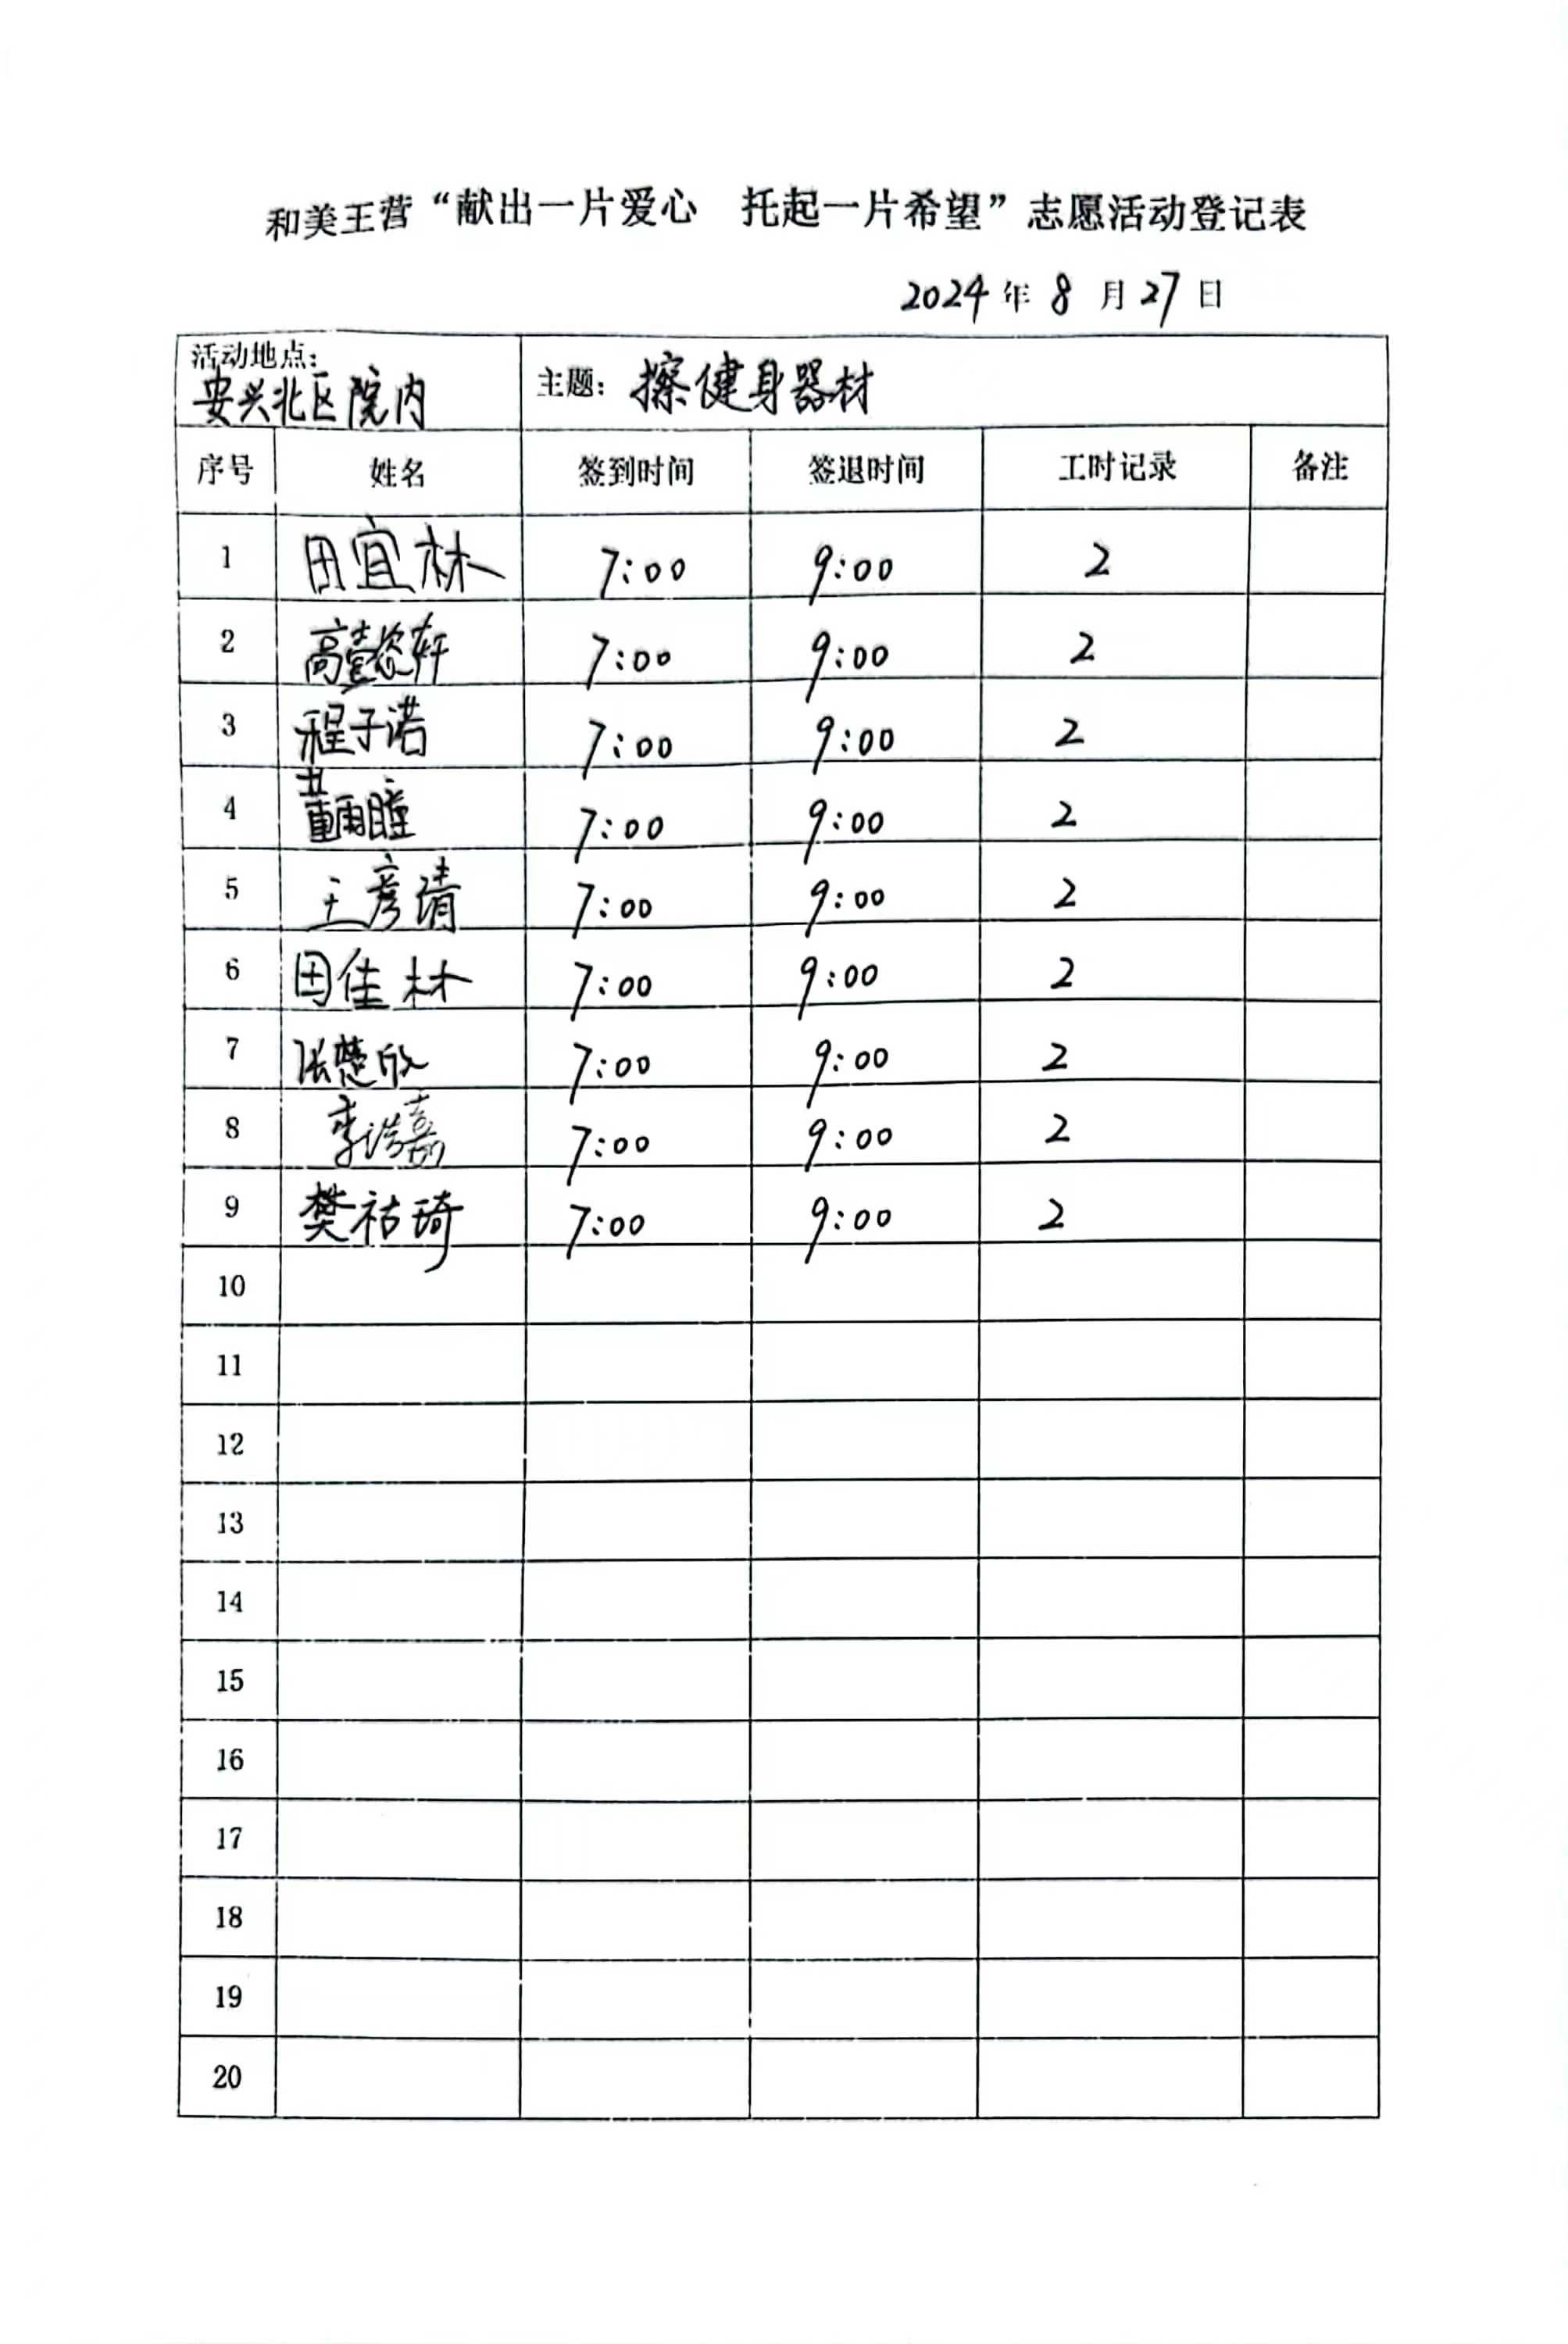 和美王营“献出一片爱心 托起一片希望”志愿活动登记表
2024年 8 月 27 日
活动地点: 安兴北区院内 主题: 擦健身器材
序号 姓名 签到时间 签退时间 工时记录 备注
1 田宜林 7:00 9:00 2
2 高懿轩 7:00 9:00 2
3 程子诺 7:00 9:00 2
4 董雨瞳 7:00 9:00 2
5 王彦清 7:00 9:00 2
6 田佳林 7:00 9:00 2
7 张楚欣 7:00 9:00 2
8 李浩嘉 7:00 9:00 2
9 樊祜琦 7:00 9:00 2
10
11
12
13
14
15
16
17
18
19
20